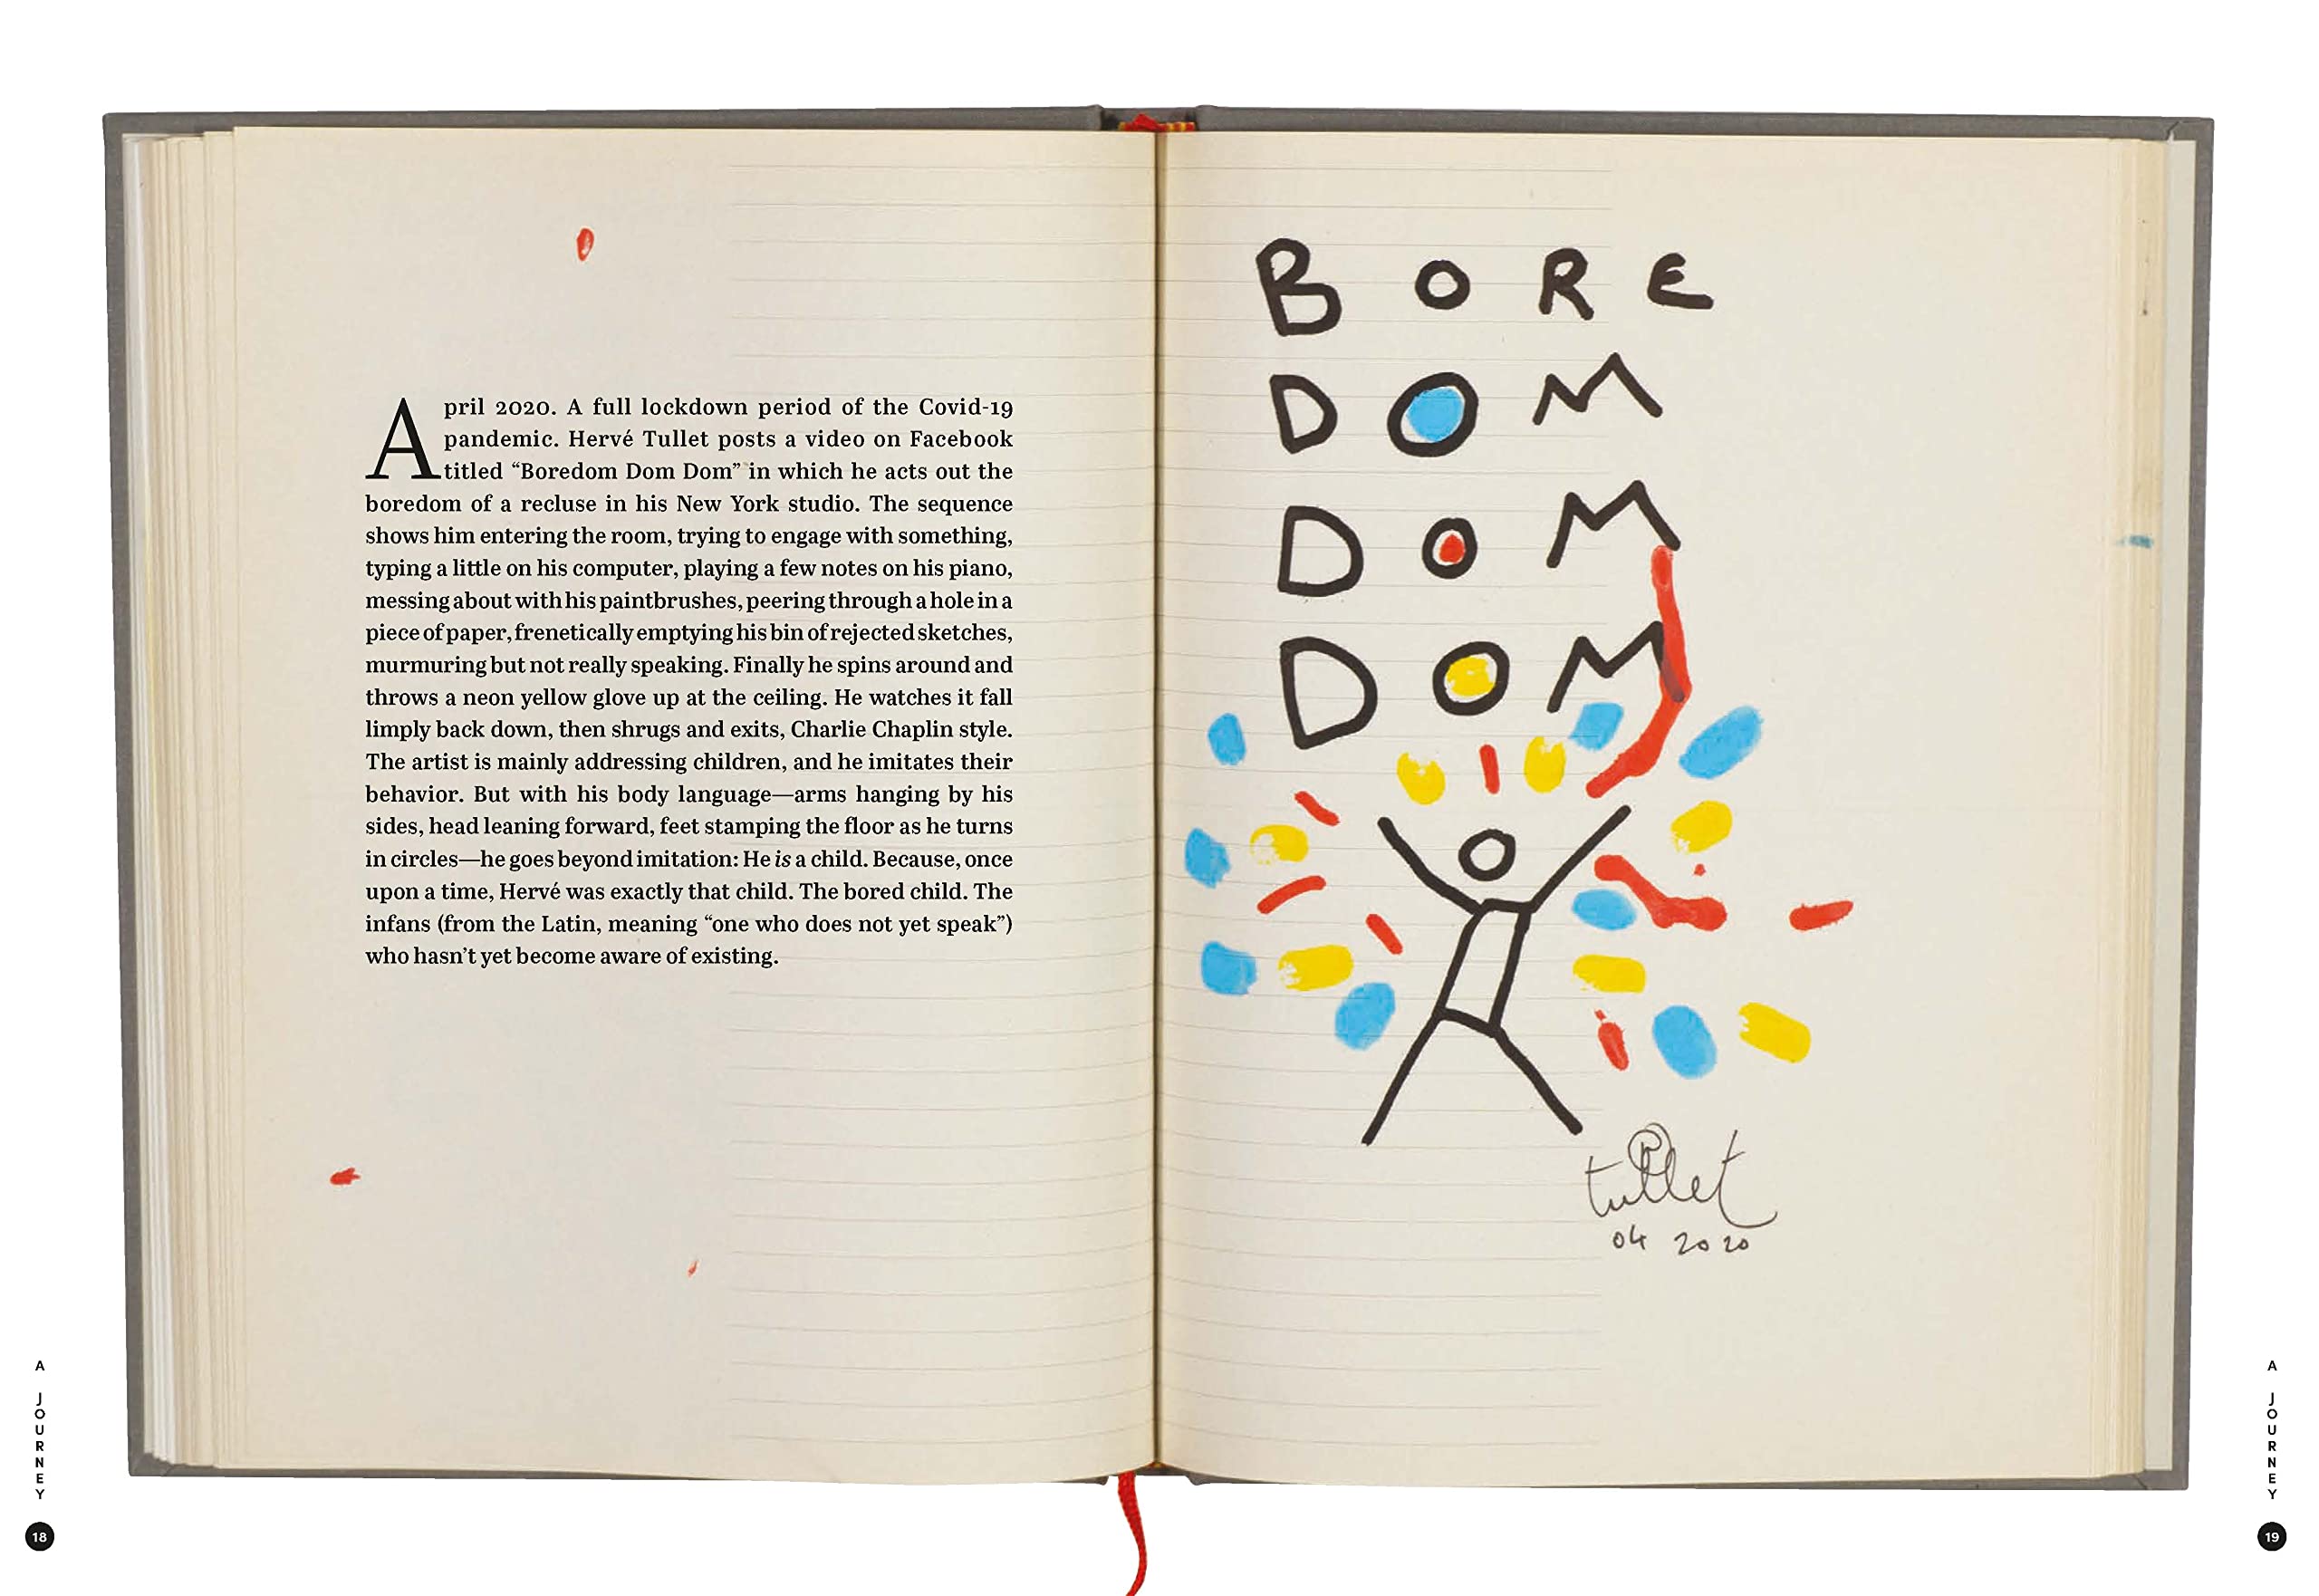 April 2020. A full lockdown period of the Covid-19
pandemic. Hervé Tullet posts a video on Facebook
titled “Boredom Dom Dom” in which he acts out the
boredom of a recluse in his New York studio. The sequence
shows him entering the room, trying to engage with something,
typing a little on his computer, playing a few notes on his piano,
messing about with his paintbrushes, peering through a hole in a
piece of paper, frenetically emptying his bin of rejected sketches,
murmuring but not really speaking. Finally he spins around and
throws a neon yellow glove up at the ceiling. He watches it fall
limply back down, then shrugs and exits, Charlie Chaplin style.
The artist is mainly addressing children, and he imitates their
behavior. But with his body language—arms hanging by his
sides, head leaning forward, feet stamping the floor as he turns
in circles—he goes beyond imitation: He is a child. Because, once
upon a time, Hervé was exactly that child. The bored child. The
infans (from the Latin, meaning “one who does not yet speak”)
who hasn’t yet become aware of existing.
A JOURNEY
18
BORE
DOM
DOM
DOM
tullet
04 2020
A JOURNEY
19